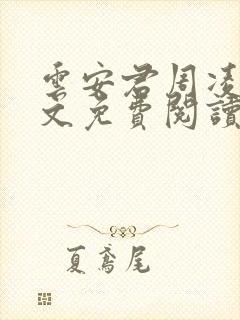 雲安君周凌
文免費閱讀
夏鳶尾